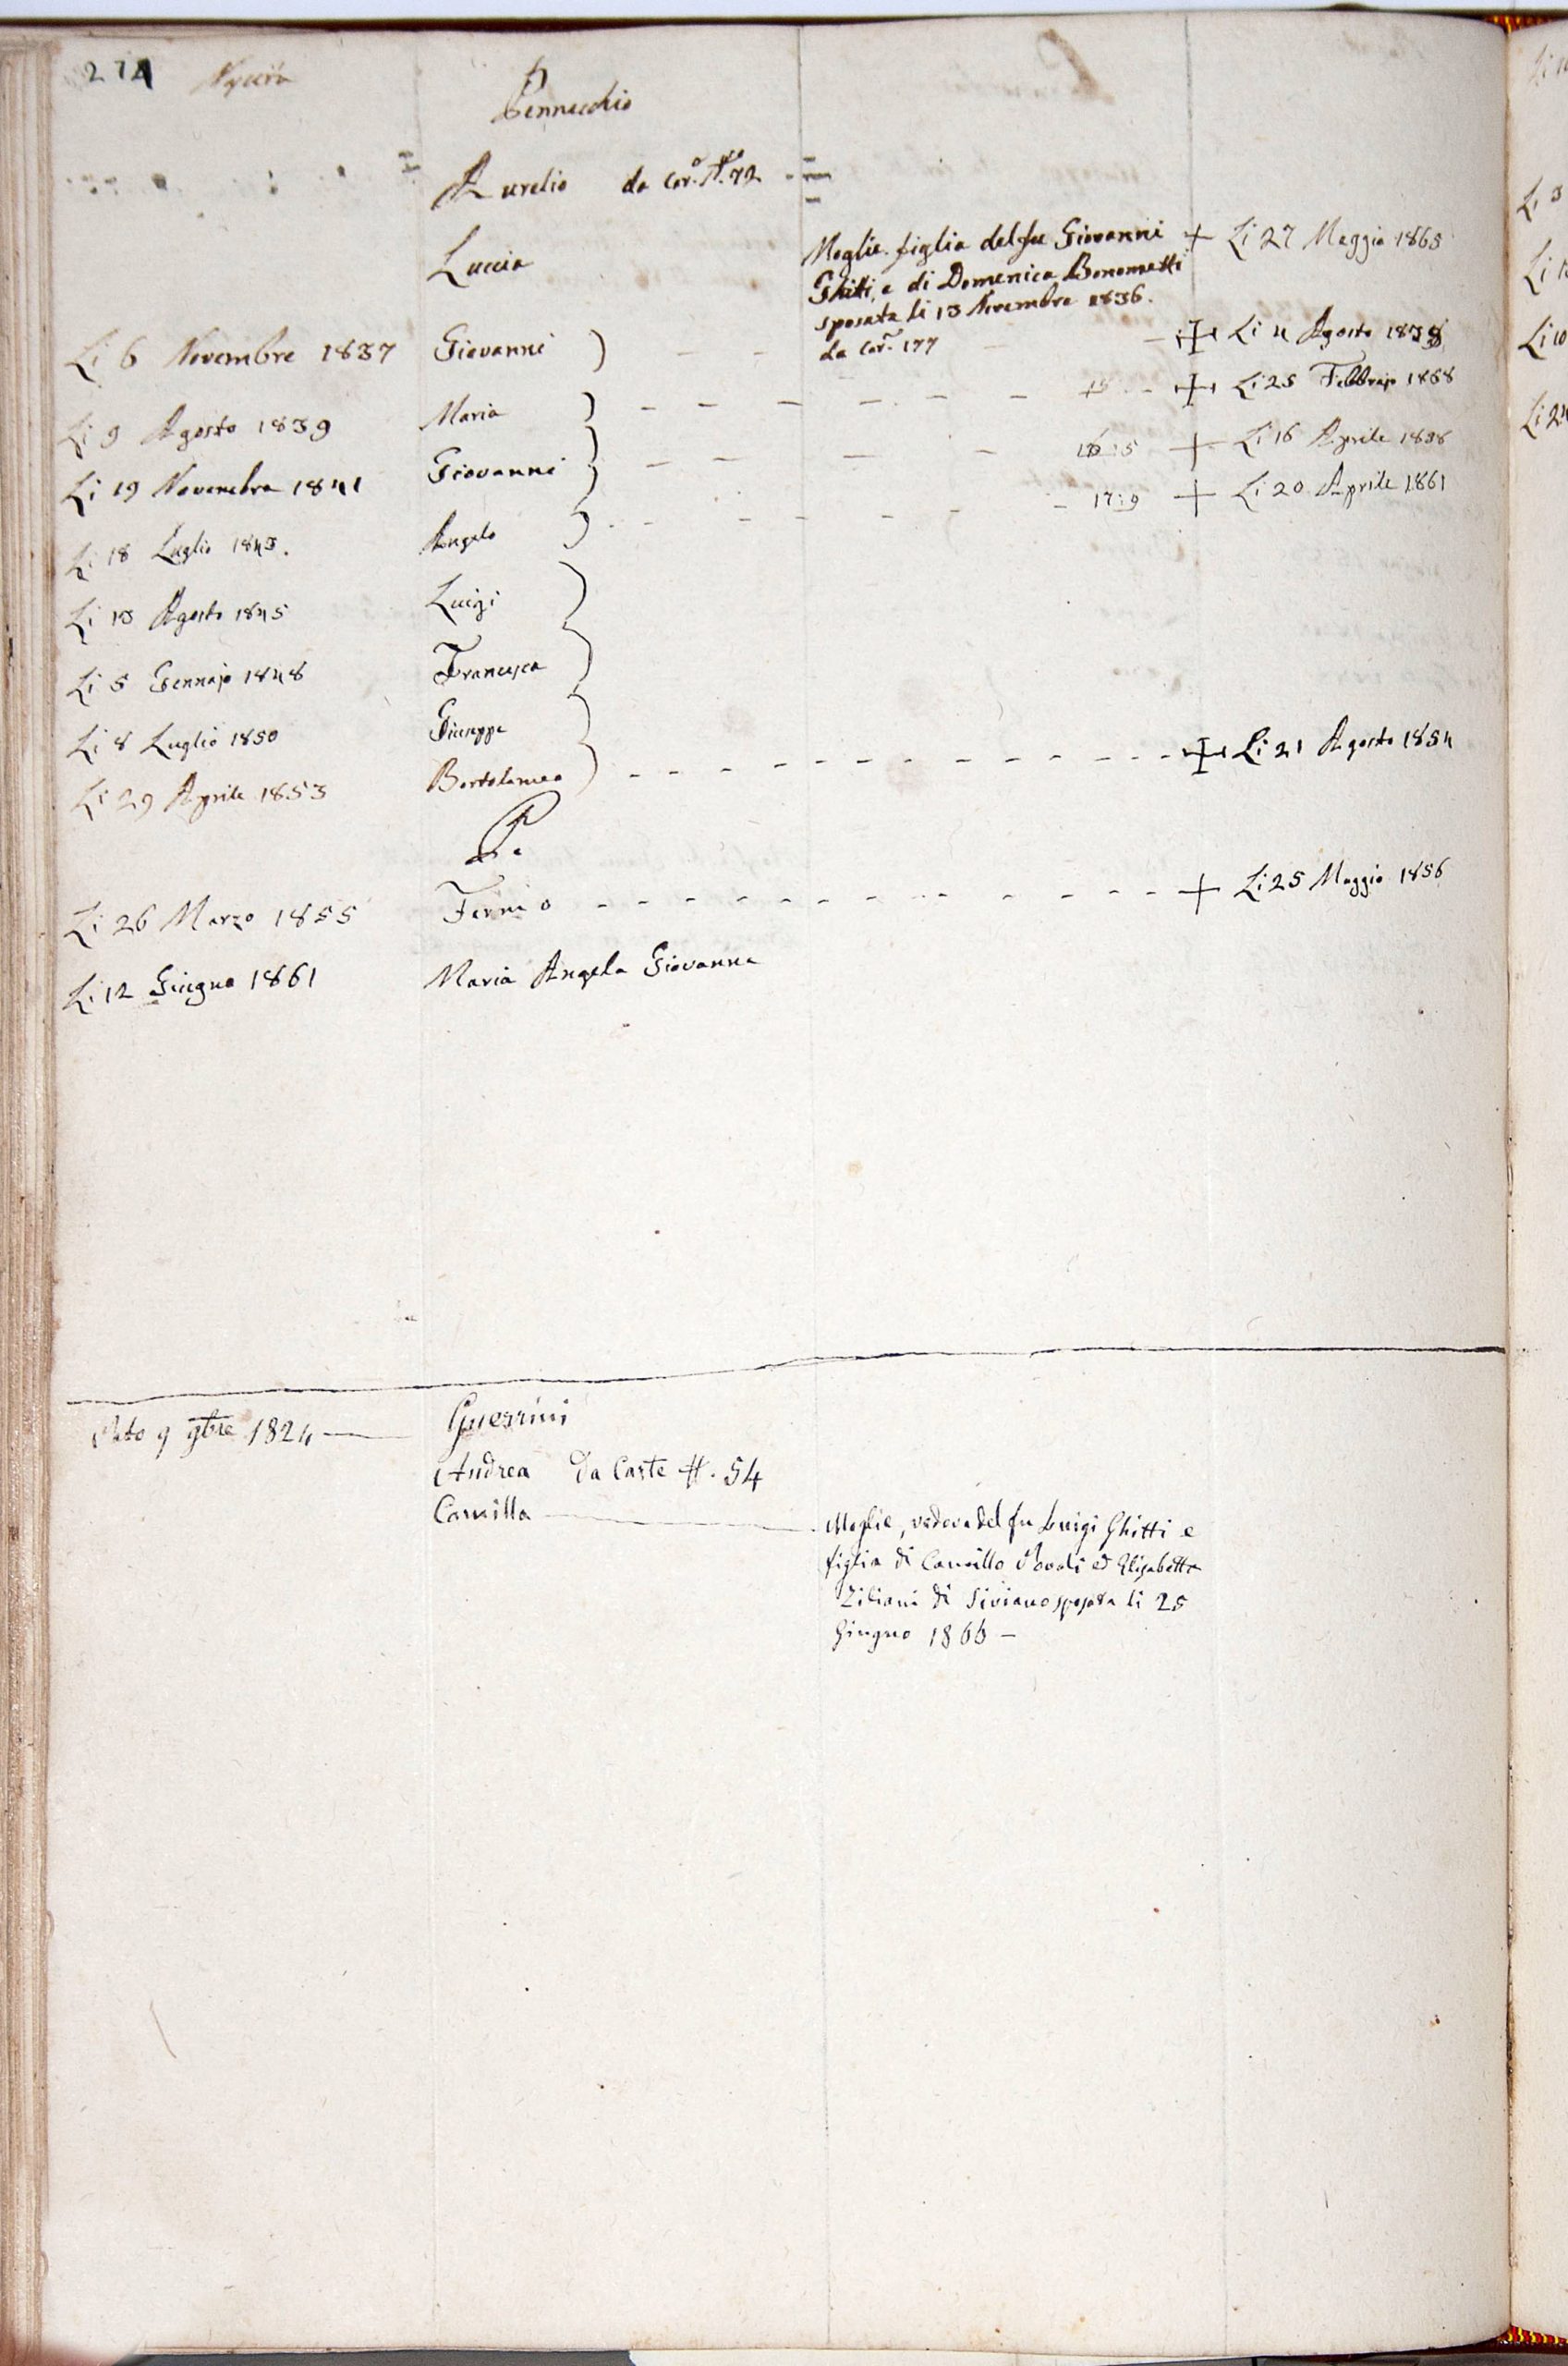 274
Pennacchio
Aurelio da Car.º N.º 72
Luccia Moglie figlia del fu Giovanni + Li 27 Maggio 1865
Ghitti, e di Domenica Bonometti
sposata li 13 Novembre 1836.
da Car. 177
Li 6 Novembre 1837 Giovanni ) - - - + Li 4 Agosto 1838
Li 9 Agosto 1839 Maria ) - - - - - - + Li 25 Febbrajo 1858
Li 19 Novembre 1841 Giovanni ) - - - - 16:5 + Li 16 Aprile 1858
Li 18 Luglio 1843. Angelo ) - - - - - - 17:9 + Li 20 Aprile 1861
Li 13 Agosto 1845 Luigi )
Li 5 Gennajo 1848 Francesca )
Li 8 Luglio 1850 Giuseppe )
Li 29 Aprile 1853 Bortolomeo ) - - - - - - + Li 21 Agosto 1854
Li 26 Marzo 1855 Fermo - - - - - - + Li 25 Maggio 1856
Li 12 Giugno 1861 Maria Angela Giovanna
Nato 9 9bre 1824 — Guerrini
Andrea Da Carte #. 54
Camilla — Moglie, vedova del fu Luigi Ghitti e
figlia di Camillo ed Elisabetta
Ziliani di Siviano sposata li 25
Giugno 1866 —